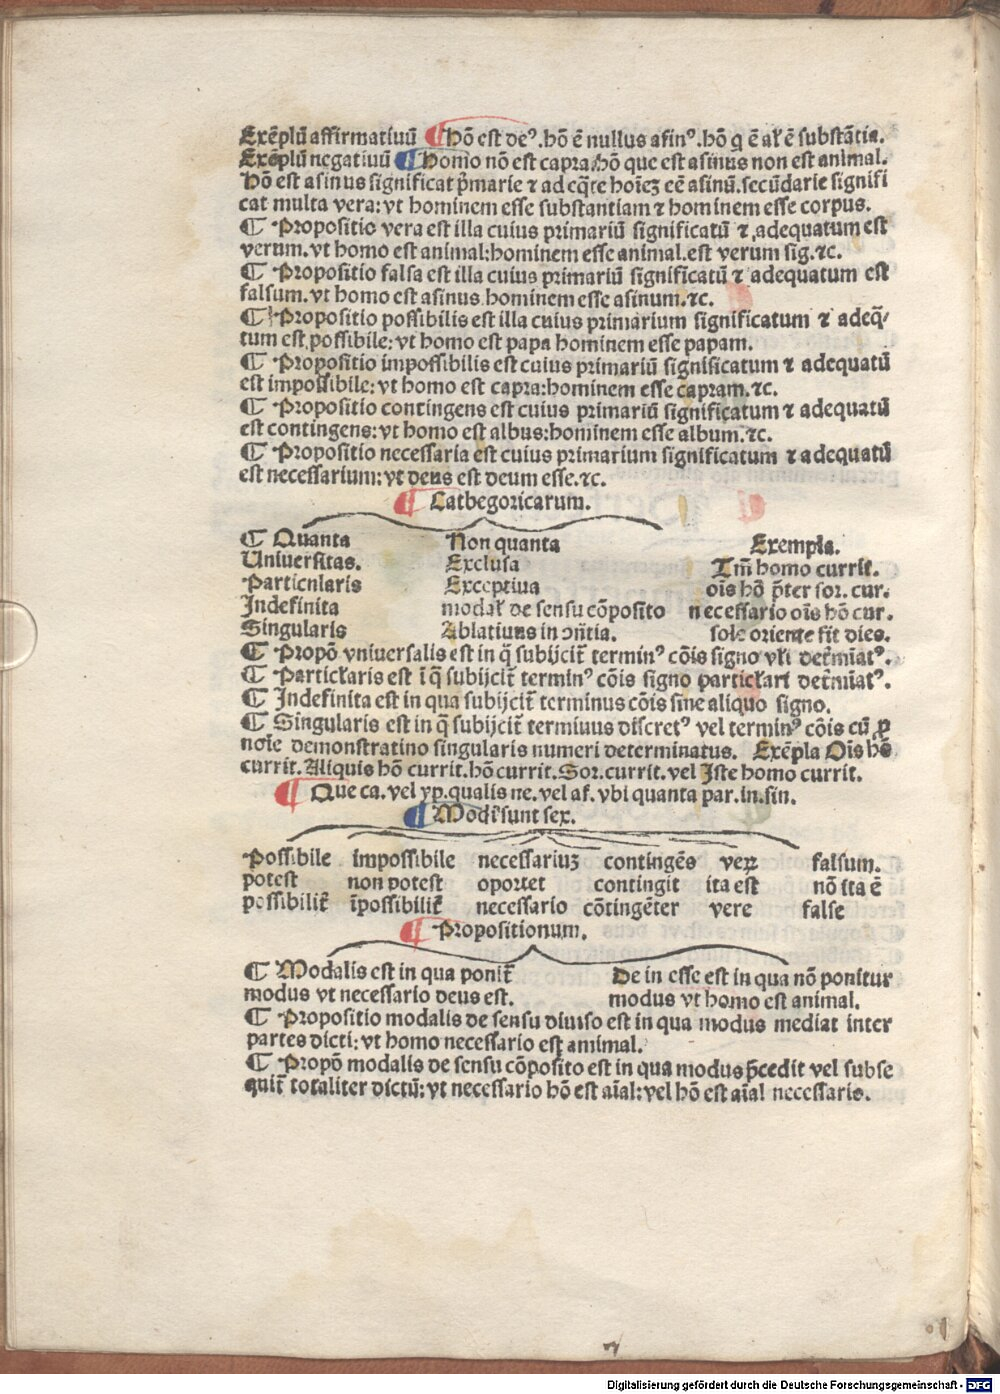 Exēplū affirmatiuū ¶ Hō est deꝰ. hō ē nullus asinꝰ. hō q̄ ē aĺ ē substātia.
Exēplū negatiuū ¶ Homo nō est capra. hō que est asinus non est animal.
Hō est asinus significat p̄marie ⁊ adeq̄te hoīeꝫ eē asinū. secūdarie signifi
cat multa vera: vt hominem esse substantiam ⁊ hominem esse corpus.
¶ Propositio vera est illa cuius primariū significatū ⁊ adequatum est
verum. vt homo est animal: hominem esse animal. est verum sig. ⁊c.
¶ Propositio falsa est illa cuius primariū significatū ⁊ adequatum est
falsum. vt homo est asinus hominem esse asinum. ⁊c.
¶ Propositio possibilis est illa cuius primarium significatum ⁊ adeq̄/
tum est possibile: vt homo est papa hominem esse papam.
¶ Propositio impossibilis est cuius primariū significatum ⁊ adequatū
est impossibile: vt homo est capra: hominem esse capram. ⁊c.
¶ Propositio contingens est cuius primariū significatum ⁊ adequatū
est contingens: vt homo est albus: hominem esse album. ⁊c.
¶ Propositio necessaria est cuius primarium significatum ⁊ adequatū
est necessarium: vt deus est deum esse. ⁊c.
¶ Cathegoricarum.
¶ Quanta Non quanta Exempla.
Uniuersitas. Exclusa Tm̄ homo currit.
Particularis Exceptiua oīs hō p̄ter sor. cur.
Indefinita modaĺ de sensu cōposito necessario oīs hō cur.
Singularis Ablatiuus in ɔñtia. sole oriente fit dies.
¶ Propō vniuersalis est in q̄ subijcit̄ terminꝰ cōis signo vĺi det̄mīatꝰ.
¶ Particĺaris est ī q̄ subijcit̄ terminꝰ cōis signo particĺari det̄mīatꝰ.
¶ Indefinita est in qua subijcit̄ terminus cōis sine aliquo signo.
¶ Singularis est in q̄ subijcit̄ terminus discretꝰ vel terminꝰ cōis cū ꝓ
noīe demonstratiuo singularis numeri determinatus. Exēpla Oīs hō
currit. Aliquis hō currit. hō currit. Sor. currit. vel Iste homo currit.
¶ Que ca. vel yp. qualis ne. vel af. vbi quanta par. in. sin.
¶ Modi sunt sex.
Possibile impossibile necessariuꝫ contingēs veꝝ falsum.
potest non potest oportet contingit ita est nō ita ē
possibilit̄ īpossibilit̄ necessario cōtingēter vere false
¶ Propositionum.
¶ Modalis est in qua ponit̄ De in esse est in qua nō ponitur
modus vt necessario deus est. modus vt homo est animal.
¶ Propositio modalis de sensu diuiso est in qua modus mediat inter
partes dicti: vt homo necessario est animal.
¶ Propō modalis de sensu cōposito est in qua modus p̄cedit vel subse
quit̄ totaliter dictū: vt necessario hō est aīal: vel hō est aīal necessario.
Digitalisierung gefördert durch die Deutsche Forschungsgemeinschaft - DFG